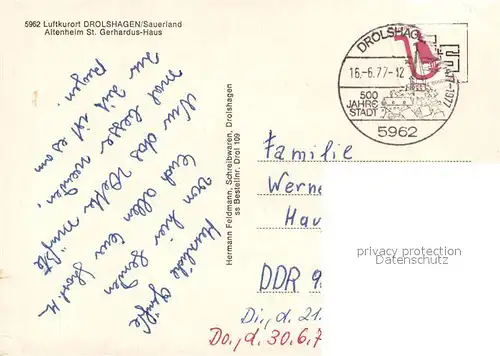 5962 Luftkurort DROLSHAGEN/Sauerland
Altenheim St. Gerhardus-Haus
DROLSHAGEN
16.-6.77-12
500
JAHRE
STADT
1477-1977
5962
Herzliche Grüße
von hier senden
Euch allen Eure
Nur das Wetter müßte
mal besser werden,
zur Zeit ist es am
Regen.
Hermann Feldmann, Schreibwaren, Drolshagen
ss Bestellnr. Drol 109
Familie
Werne
Hau
DDR 9
Di., d. 21.
Do., d. 30.6.7
privacy protection
Datenschutz